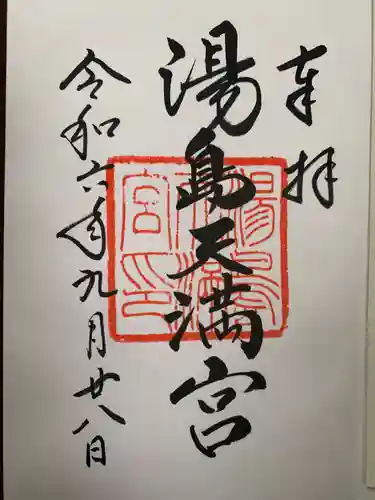 奉拝
湯島天満宮
令和六年九月廿八日
湯島天満宮印